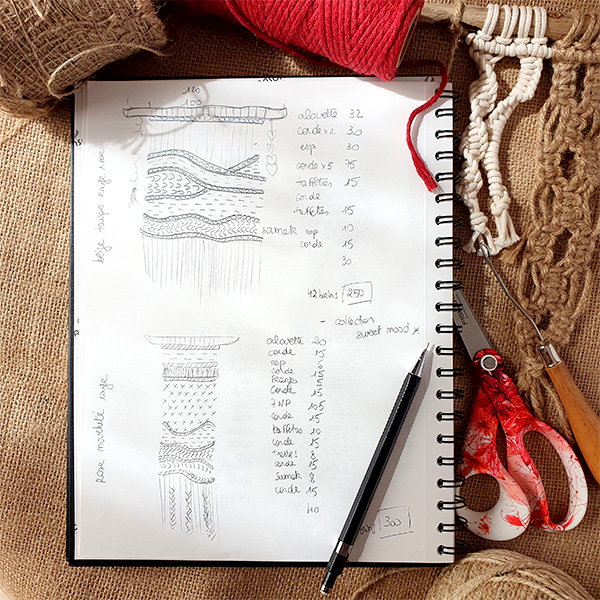 120
100
alouette 32
corde x2 30
esp. 30
corde x5 75
taffetas 15
corde
taffetas 15
samak esp 10
corde 15
30
42 brins 250
- collection
sweet mood *
beige taupe
alouette 20
corde 15
esp 6
corde 15
5
corde 15
7 NP 105
corde 15
taffetas 10
corde 15
tresses 8
corde 15
samak 8
corde 15
40
300
rose